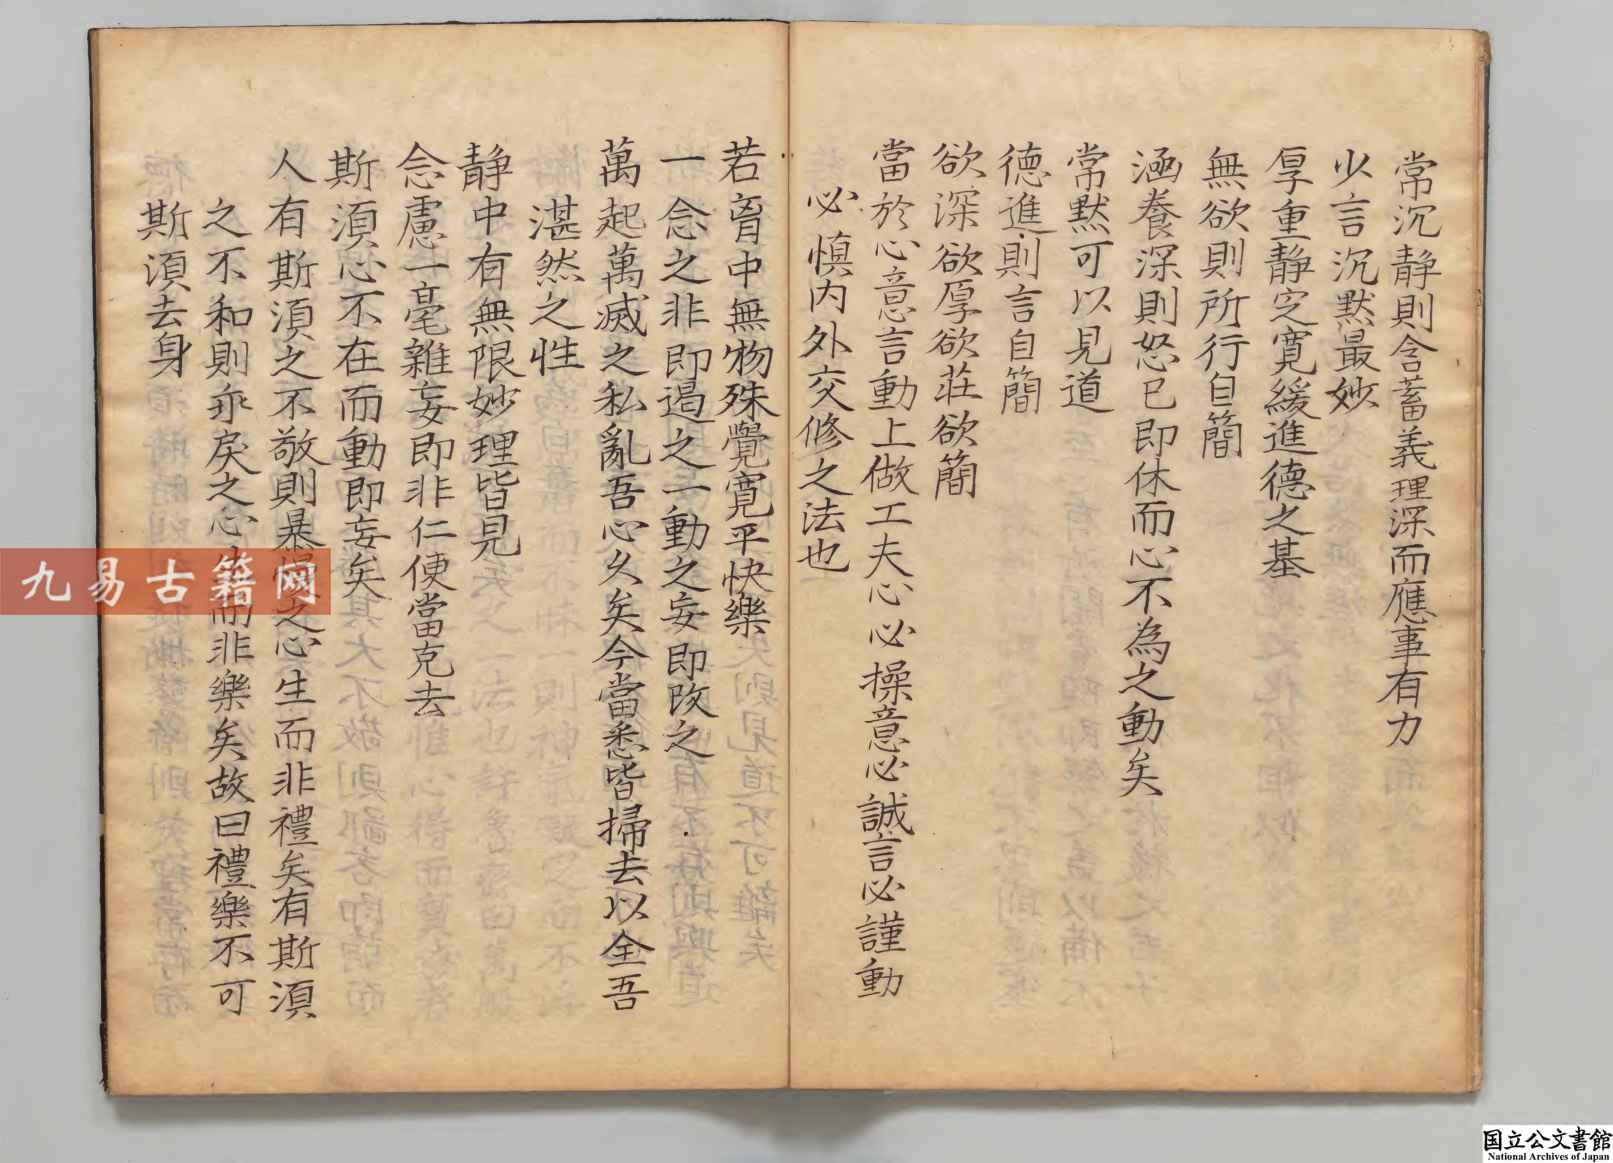 常沉静則含蓄義理深而應事有力
少言沉默最妙
厚重静定寛緩進德之基
無欲則所行自簡
涵養深則怒已即休而心不為之動矣
常默可以見道
德進則言自簡
欲深欲厚欲荘欲簡
當於心意言動上做工夫心必操意必誠言必謹動
必慎内外交修之法也
若胷中無物殊覺寛平快樂
一念之非即遏之一動之妄即改之
萬起萬滅之私亂吾心久矣今當悉皆掃去以全吾
湛然之性
静中有無限妙理皆見
念慮一毫雜妄即非仁便當克去
斯湏心不在而動即妄矣
人有斯湏之不敬則暴慢之心生而非禮矣有斯湏
之不和則乖戾之心生而非樂矣故曰禮樂不可
斯湏去身
九易古籍网
国立公文書館
National Archives of Japan